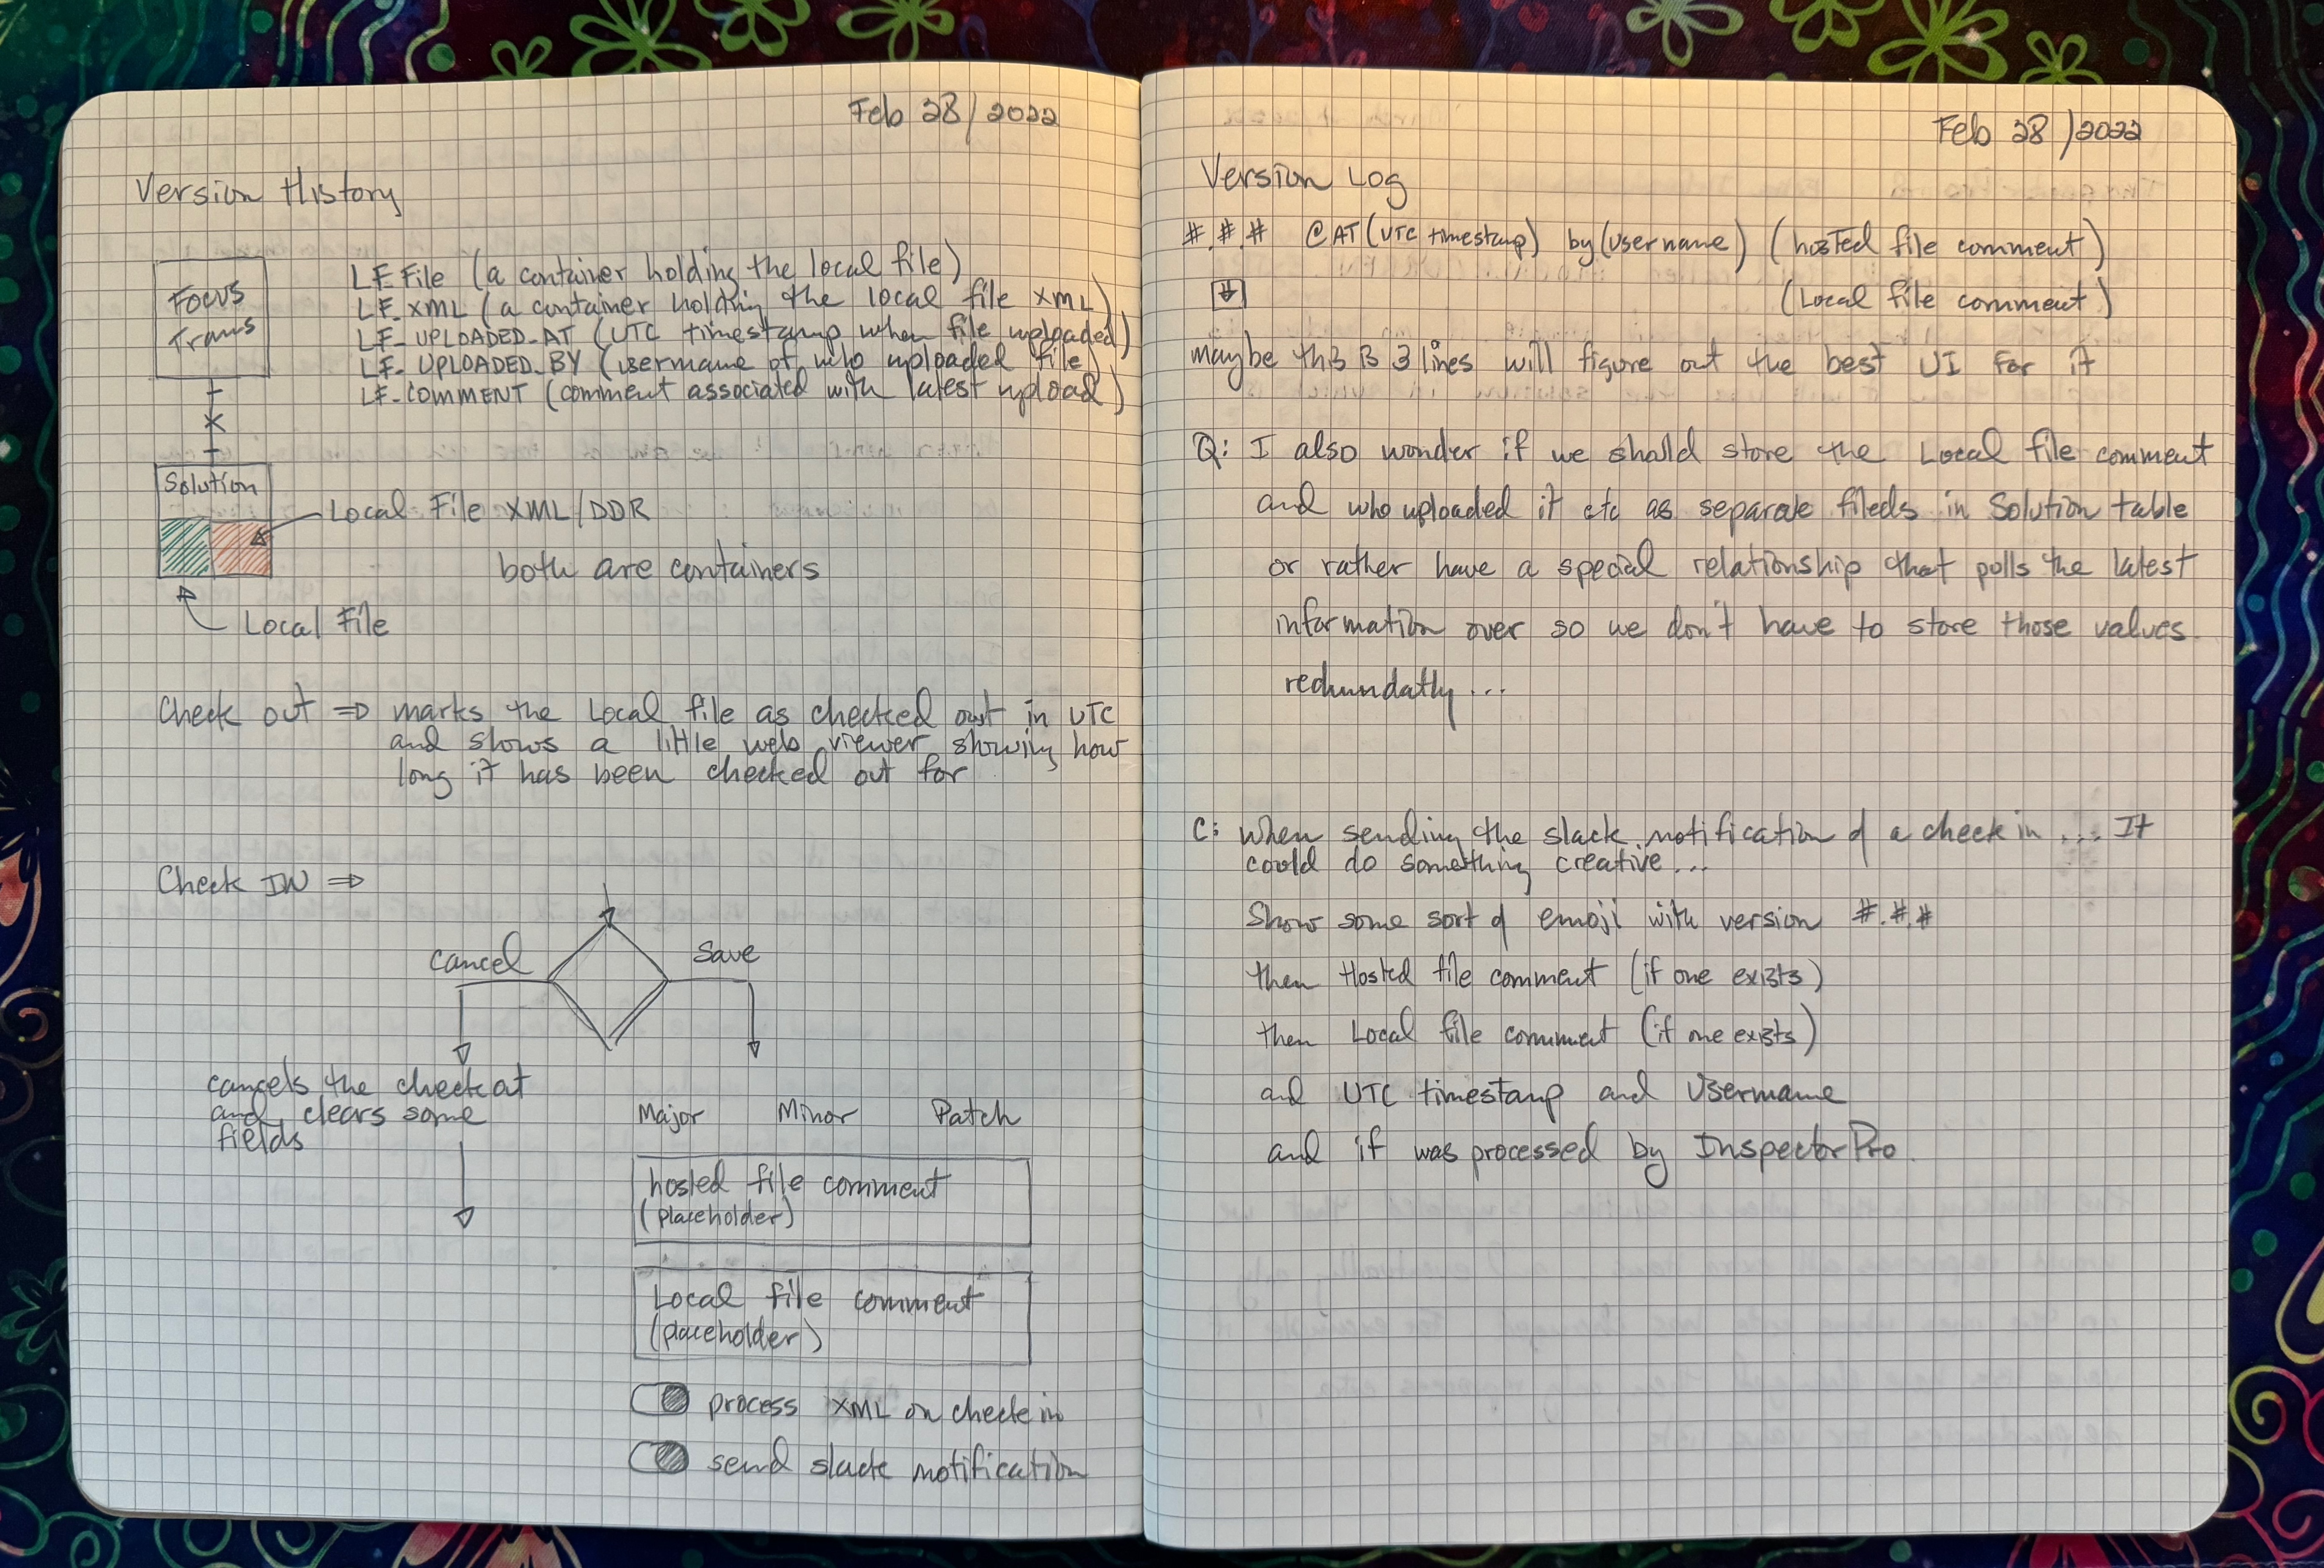 Feb 28/2022
Version History
Focus
Trans
LF File (a container holding the local file)
LF_XML (a container holding the local file XML)
LF_UPLOADED_AT (UTC timestamp when file uploaded)
LF_UPLOADED_BY (username of who uploaded file)
LF_COMMENT (comment associated with latest upload)
Solution
Local File XML/DDR
both are containers
Local File
Check out ⇒ marks the Local file as checked out in UTC
and shows a little web viewer showing how
long it has been checked out for
Check IN ⇒
cancel
Save
cancels the check out
and clears some
fields
Major Minor Patch
hosted file comment
(placeholder)
Local file comment
(placeholder)
process XML on check in
send slack notification
Feb 28/2022
Version Log
#.#.# @AT (UTC timestamp) by (username) (hosted file comment)
(Local file comment)
maybe this is 3 lines will figure out the best UI for it
Q: I also wonder if we should store the Local file comment
and who uploaded it etc as separate fileds in Solution table
or rather have a special relationship that pulls the latest
information over so we don't have to store those values
redundatly...
C: when sending the slack notification of a check in .... It
could do something creative...
Show some sort of emoji with version #.#.#
then Hosted file comment (if one exists)
then Local file comment (if one exists)
and UTC timestamp and Username
and if was processed by InspectorPro.